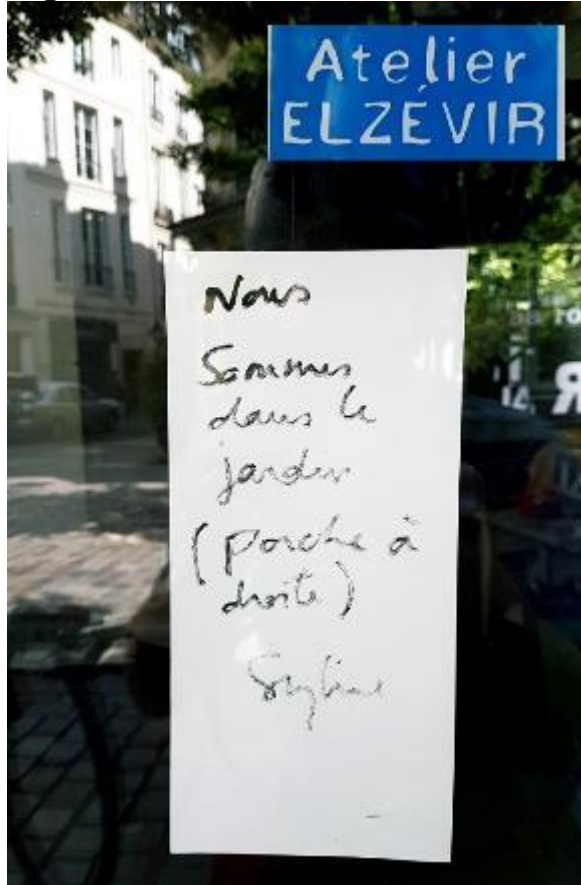 Atelier
ELZÉVIR
Nous
Sommes
dans le
jardin
(porche à
droite)